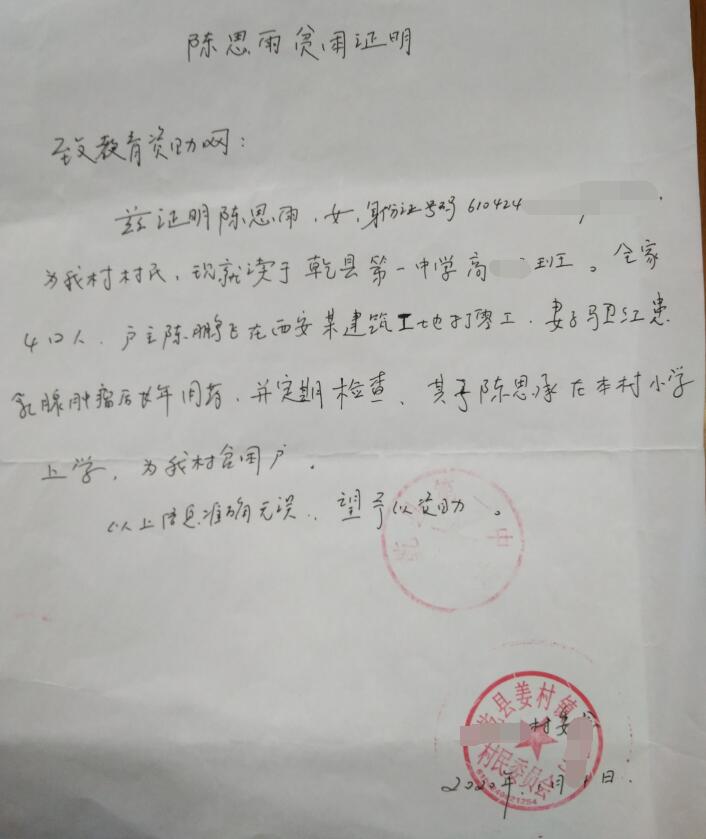 陈思雨贫困证明
致教育资助网：
兹证明陈思雨，女，身份证号码610424
为我村村民，现就读于乾县第一中学高 班。全家
4口人，户主陈鹏飞在西安某建筑工地打零工，妻子马卫红患
乳腺肿瘤后长年用药，并定期检查，其子陈思承在本村小学
上学，为我村贫困户。
以上信息准确无误，望予以资助。
县姜村镇
村委会
村民委员会
2020年 月 日.